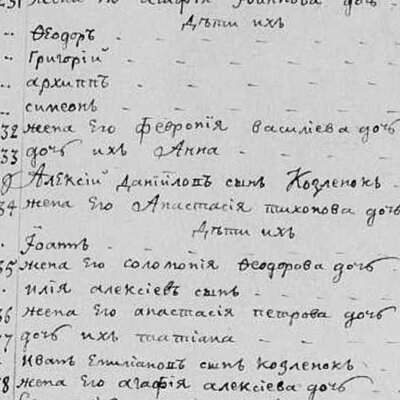 31 жена его агафія Іоаннова дочь
Дѣти ихъ
Ѳеодоръ
Григорій
архиппъ
симеонъ
32 жена Его Февронія василіева дочь
33 дочь ихъ Анна
Алексій Даніиловъ сынъ Козленокъ
34 жена Его Анастасія тихонова дочь
Дѣти ихъ
Іоаннъ
35 жена Его соломонія Ѳеодорова дочь
илія алексіевъ сынъ
36 жена Его анастасія петрова дочь
37 дочь ихъ татіана
Иванъ Емиліановъ сынъ козленокъ
38 жена Его агафія алексіева дочь